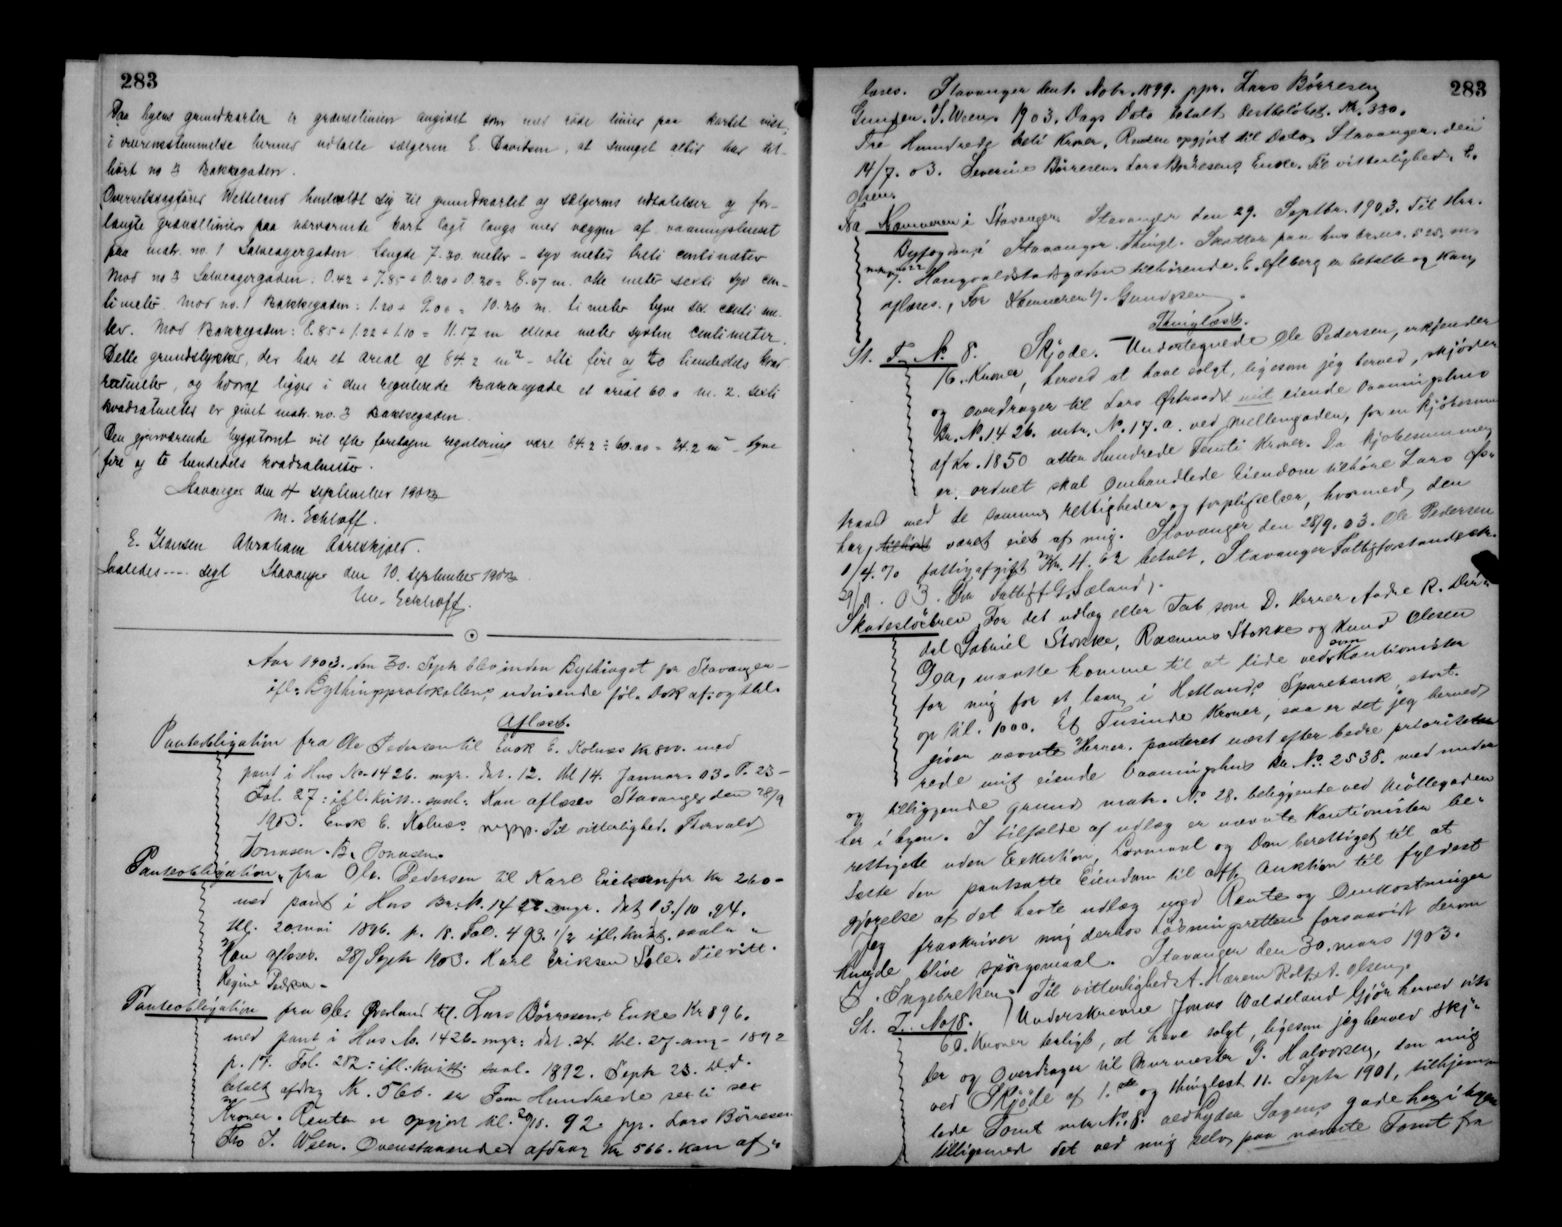 283
Paa byens grundkarter er grændselinien angivet som med røde linier paa kartet vist,
i overensstemmelse hermed udtalte sælgeren E. Davidsen, at smuget altid har til-
hørt no 3 Bakkegaden.
Overretssagfører Wetteland henholdt sig til grundkartet og sælgerens udtalelser og for-
langte grændselinien paa nærværende kart lagt langs med væggen af vaaningshuset
paa matr. no. 1 Salveagergaden. Længde 7.30 meter - syv meter treti centimeter
Mod no 3 Salveagergaden: 0.42 + 7.85 + 0.20 + 0.20 = 8.67 m. otte meter sexti syv cen-
timeter Mod no. 1 Bakkegaden: 1.20 + 9.06 = 10.26 m. ti meter tyve sex centi me-
ter. Mod Bakkegaden: 8.85 + 1.22 + 1.10 = 11.17 m elleve meter sytten centimeter.
Dette grundstykke, der har et areal af 84.2 m² - otti fire og to tiendedels kvad
ratmeter, og hvoraf ligger i den regulerede Bakkegade et areal 60.0 m. 2. sexti
kvadratmeter er givet matr. no. 3 Bakkegaden.
Den gjenværende byggetomt vil efter foretagen regulering være 84.2 ÷ 60.00 = 24.2 m² - tyve
fire og to tiendedels kvadratmeter.
Stavanger den 4 september 1903
M. Eckhoff.
E. Hansen Abraham Aareskjold.
Saaledes --- segl Stavanger den 10. september 1903
M. Eckhoff.
Aar 1903. den 30. Septr blev inden Bythinget for Stavanger
ifl. Bythingsprotokollens udvisende føl. Dok af- og thl.
Aflæst.
Panteobligation fra Ole Pedersen til Enok E. Kolnes Kr 800. med
pant i Hus No. 1426. mgr. dat. 12. thl 14. Januar. 03. P. 23 -
Fol. 27: ifl. kvitt. saal: Kan aflæses Stavanger den 28/9
1903. Enok E. Kolnes. mpp. Til vitterlighed. Thorvald
Jonasen. B. Jonasen.
Panteobligation, fra Ole Pedersen til Karl Eriksen for kr 260 -
med pant i Hus Br. No. 1426 mgr. dat 13/10 94.
thl. 20 mai 1896. p. 18. Fol. 493. 1/2 ifl. kvitt. saal:
Kan aflæses. 28/ Septr 1903. Karl Eriksen Sole. Til vitt.
Regine Pedersen -
Panteobligation fra Ole Øverland til Lars Børresens Enke Kr 896.
med pant i Hus No. 1426. mgr: dat. 24. thl. 27. aug - 1892
p. 17. Fol. 282: ifl. kvitt: saal. 1892. Septr 23. D.d.
betalt afdrag Kr. 566. er Fem Hundrede sexti sex
Kroner. Renten er opgjort til 20/8. 92. pp. Lars Børresen
Ths J. Ween. Ovenstaaende afdrag Kr 566. kan af-
283
læses. Stavanger den 1. Nobr. 1899. ppr. Lars Børresen
Gundem. J. Ween. 1903. Dags Dato betalt Restbeløbet Kr. 330.
Tre Hundrede treti Kroner, Renten opgjort til Dato, Stavanger. den
14/7. 03. Severine Børresen. Lars Børresens Enke. Til vitterlighed. C.
Olsen.
Fra Kæmneren i Stavanger. Stavanger den 29. Septbr. 1903. Til Hrr.
Byfogden i Stavanger. Thingl. Skatter paa hus br. no. 525, m.
m. no. 22
7. Haugvaldstadsgaden tilhørende C. Aflberg er betalte og kan
aflæses., For Kæmneren Y. Gundersen.
Thinglæst.
St. T. No. 8. Skjøde. - Undertegnede Ole Pedersen, erkjender
16. Kroner, herved at have solgt, ligesom jeg herved, skjøder
og overdrager til Lars Østraadt mit eiende Vaaningshus
Br. No. 1426. mtr. No. 17. a. ved Mellemgaden, for en kjøbesum
af Kr. 1850 atten Hundrede Femti Kroner. Da kjøbesummen
er ordnet skal Omhandlede Eiendom tilhøre Lars Øst-
traad med de samme rettigheder og forpligtelser, hvormed den
har tilhørt været eiet af mig. Stavanger den 28/9. 03. Ole Pedersen
1/4. % fattigafgift Kr. 4. 62 betalt. Stavanger Fattigforstanderk.
29/9. 03. For Fattigf. G. Sæland.
Skadesløsbrev. For det udlæg eller Tab som D. Herrer Andre R. Dir-
dal, Gabriel Stokke, Rasmus Stokke og Knud Olesen
Goa, maatte komme til at lide ved som Kautionister
for mig for et laan i Hetlands Sparebank, stort.
op til. 1000. Et Tusinde Kroner, saa er det jeg herved
giver nævnte Herrer. panteret næst efter bedre prioriteter
rede mit eiende Vaaningshus Br. No. 2538. med under
og tilliggende grund matr. No. 28. beliggende ved Møllegaden
her i byen. I tilfælde af udlæg er nævnte Kautionister be-
rettigede uden Exekution, Lovmaal og Dom berettiget til at
sætte den pantsatte Eiendom til off. Auktion til fyldest
gjørelse af det havte udlæg med Rente og Omkostninger
Jeg fraskriver mig derhos Løsningsretten forsaavidt derom
kunde blive spørgsmaal. Stavanger den 30. mars 1903.
G. Ingebretsen. Til vitterlighed A. Harem Rolf A. Olsen.
St. T. No. 8. Underskrevne Jonas Waldeland Gjør herved vit-
60. Kroner terligt, at have solgt, ligesom jeg herved skjø-
der og overdrager til Murmester G. Halvorsen, den mig
ved Skjøde af 1. ste og thinglæst 11. Septr 1901, tilhjem-
lede Tomt mtr. No. 8. ved Peder Sagens gade her i byen
tilligemed det ved mig selv paa nævnte Tomt fra